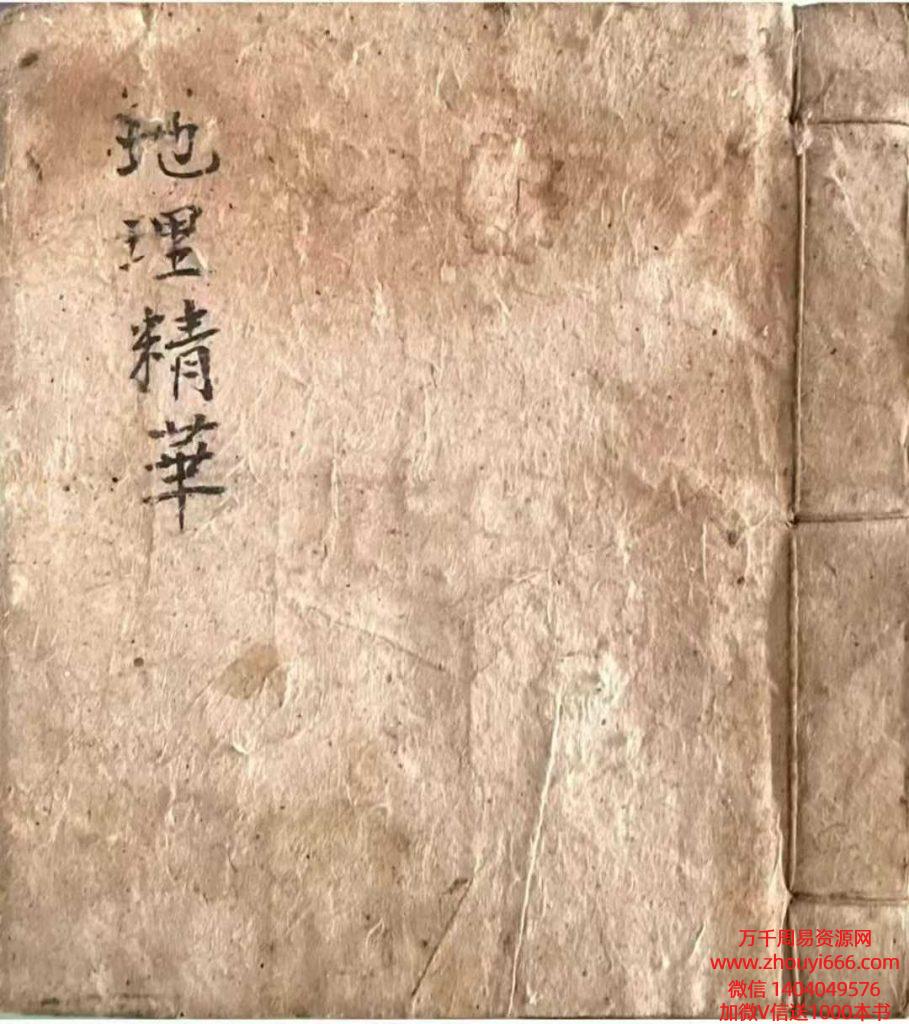 地理精華
万千周易资源网
www.zhouyi666.com
微信 1404049576
加微V信送1000本书